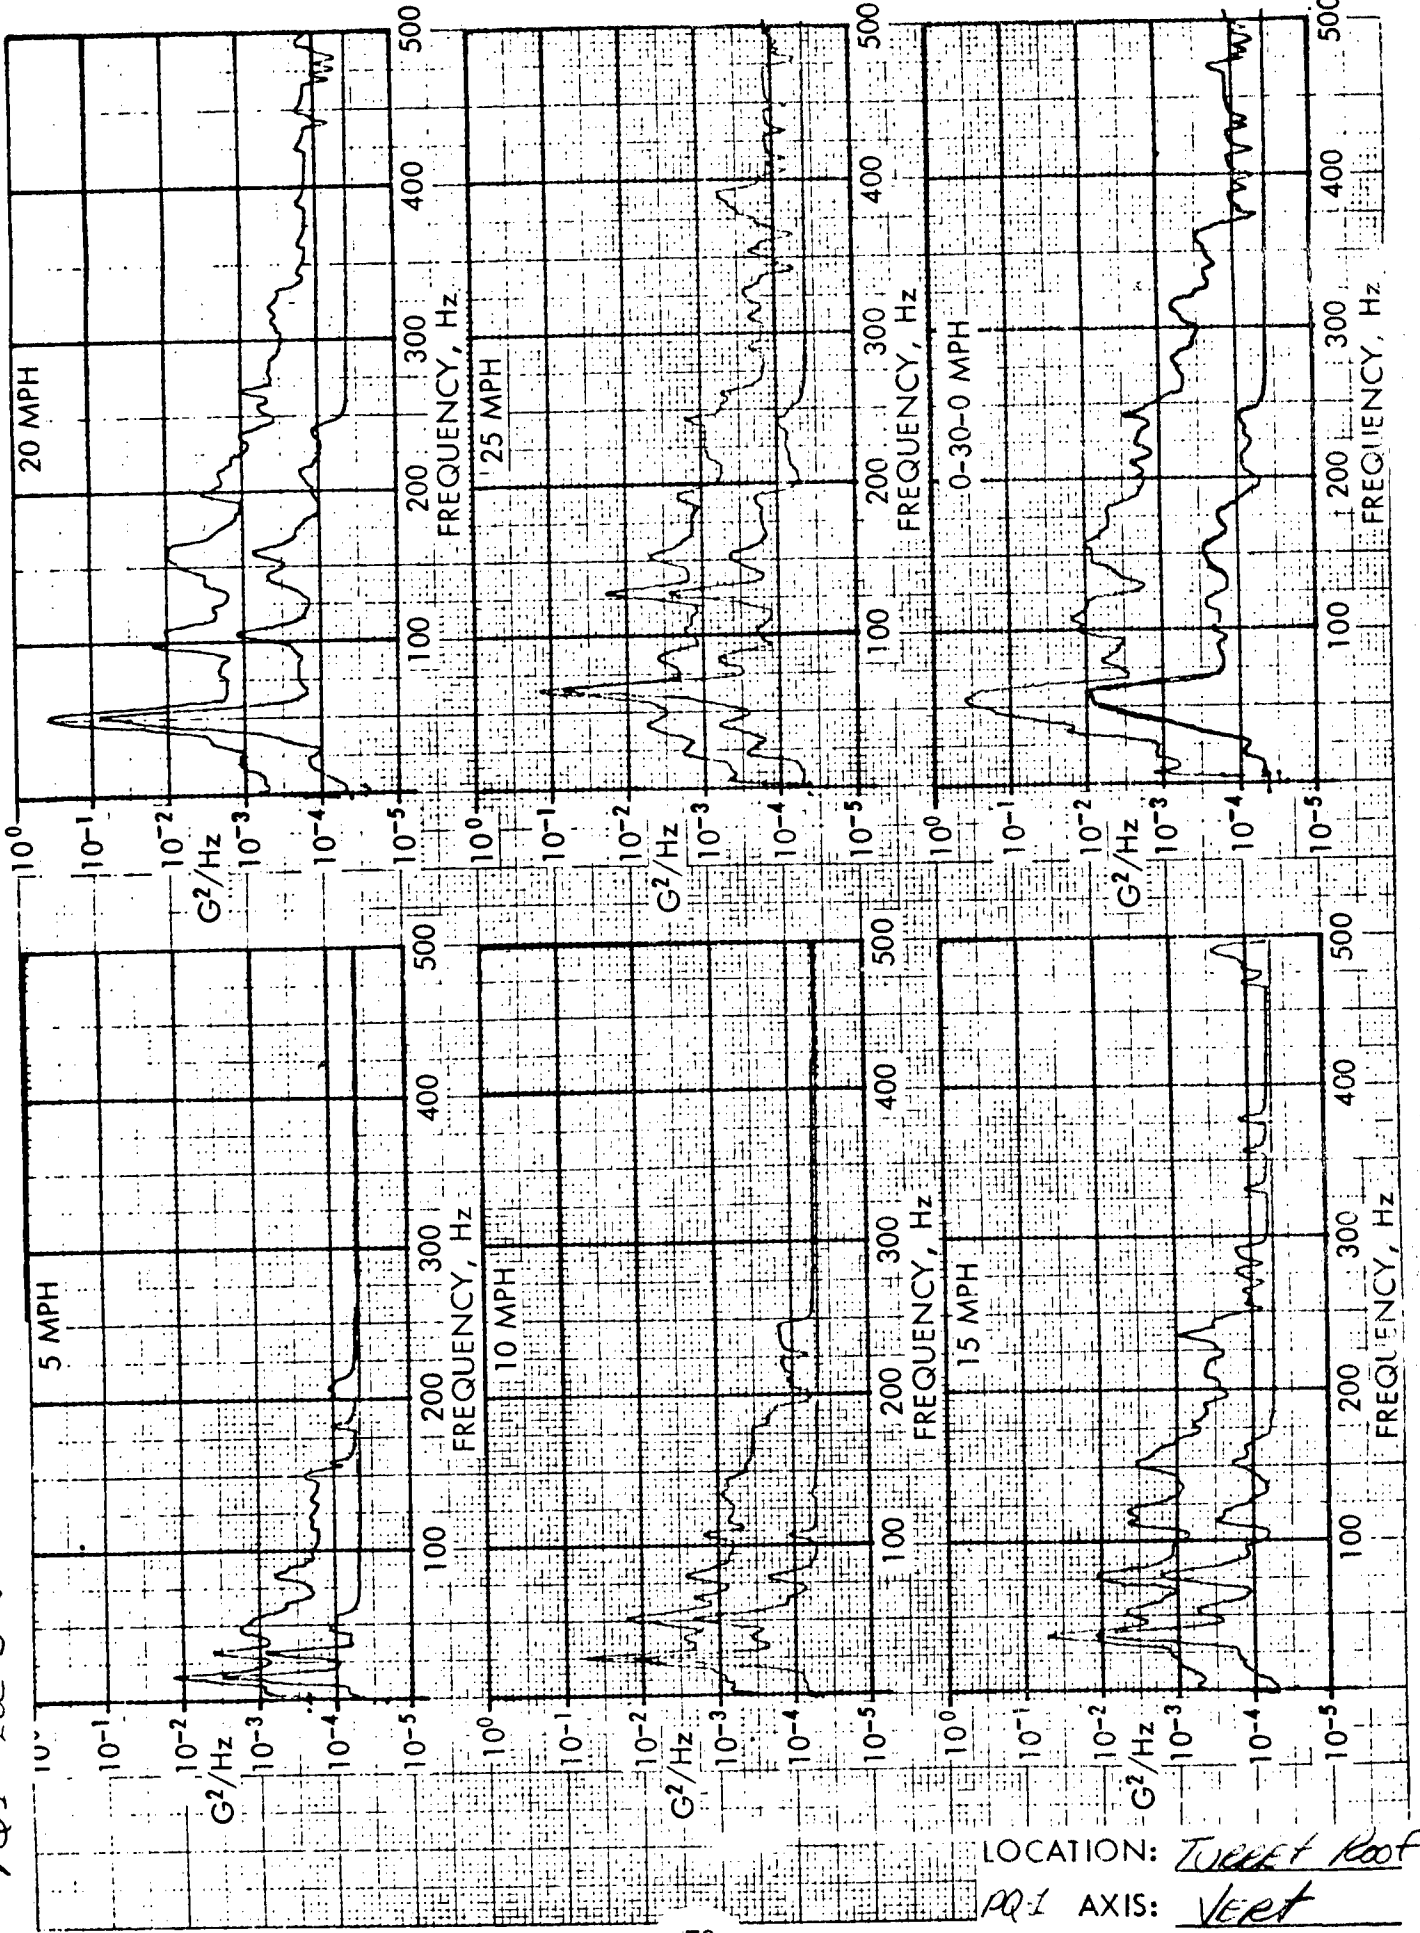 5 MPH
10⁻¹
10⁻²
G²/Hz
10⁻³
10⁻⁴
10⁻⁵
100
200
300
400
500
FREQUENCY, Hz
20 MPH
10⁰
10⁻¹
10⁻²
G²/Hz
10⁻³
10⁻⁴
10⁻⁵
100
200
300
400
500
FREQUENCY, Hz
10 MPH
10⁰
10⁻¹
10⁻²
G²/Hz
10⁻³
10⁻⁴
10⁻⁵
100
200
300
400
500
FREQUENCY, Hz
25 MPH
10⁰
10⁻¹
10⁻²
G²/Hz
10⁻³
10⁻⁴
10⁻⁵
100
200
300
400
500
FREQUENCY, Hz
15 MPH
10⁰
10⁻¹
10⁻²
G²/Hz
10⁻³
10⁻⁴
10⁻⁵
100
200
300
400
500
FREQUENCY, Hz
0-30-0 MPH
10⁰
10⁻¹
10⁻²
G²/Hz
10⁻³
10⁻⁴
10⁻⁵
100
200
300
400
500
FREQUENCY, Hz
LOCATION: TURRET ROOF
PQ-1 AXIS: VERT